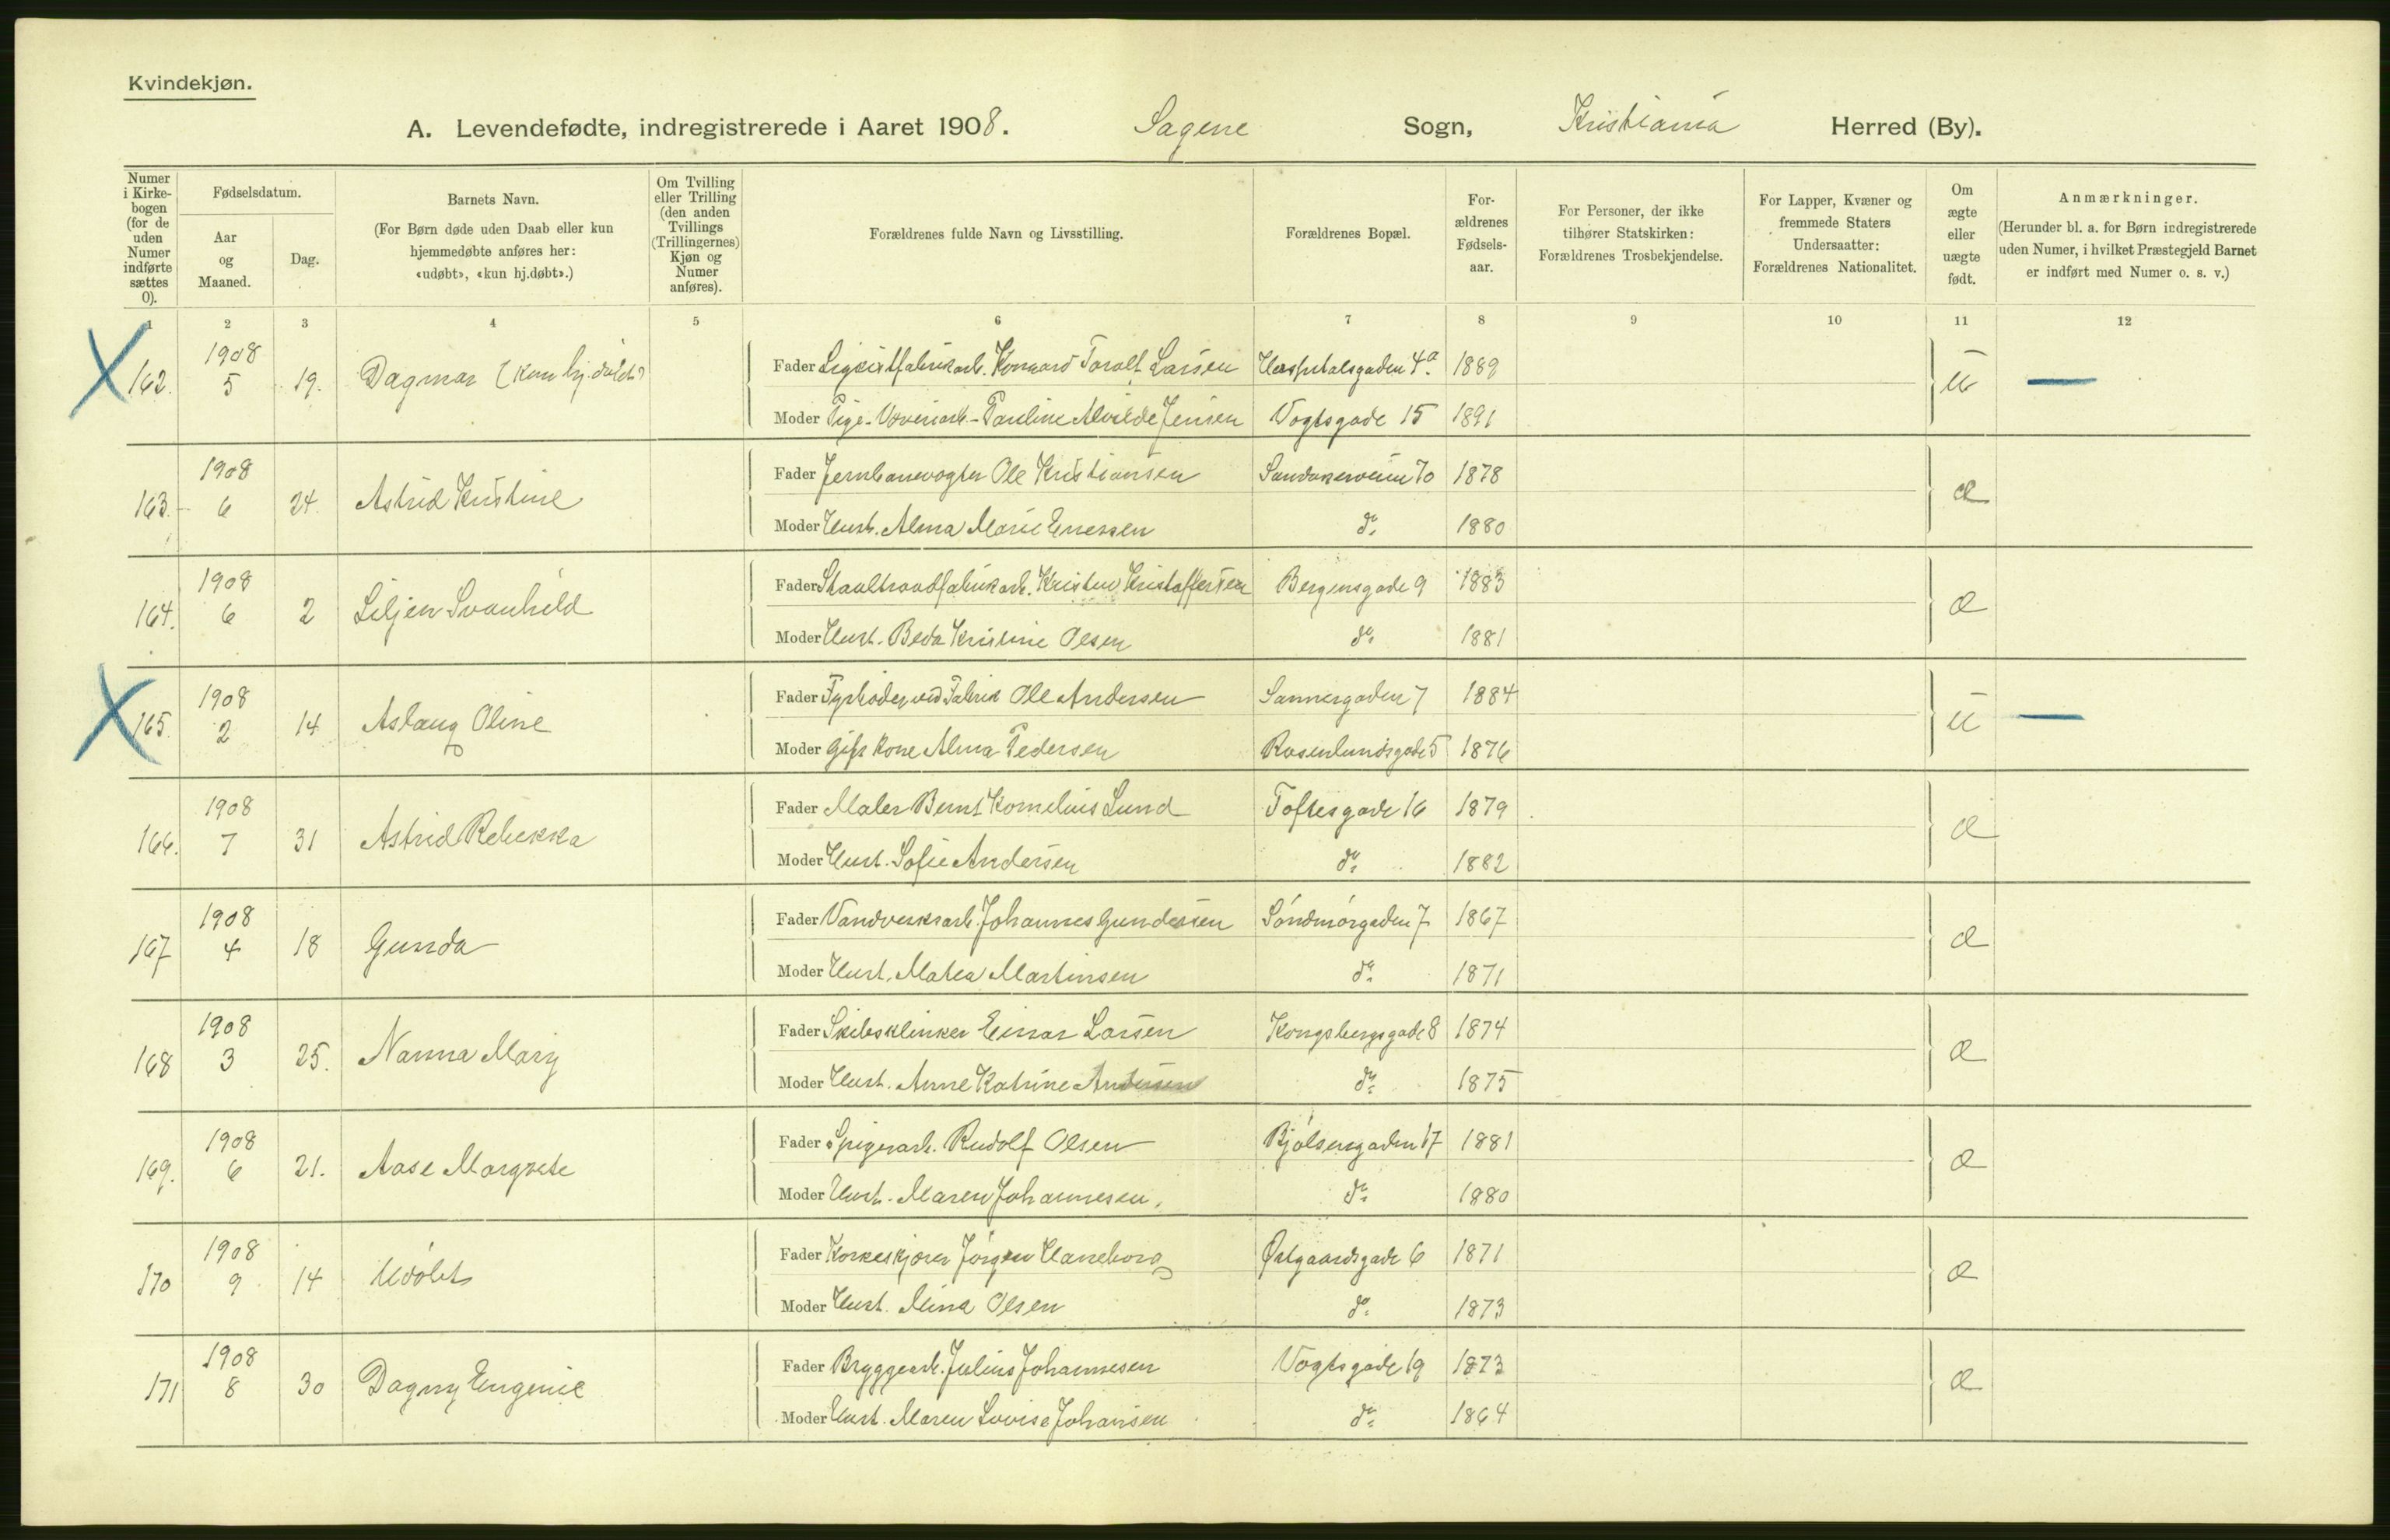 Kvindekjøn.
A. Levendefødte, indregistrerede i Aaret 1908. Sagene Sogn, Kristiania Herred (By).
Numer i Kirkebogen (for de uden Numer indførte sættes 0).
Fødselsdatum.
Aar og Maaned.
Dag.
Barnets Navn.
(For Børn døde uden Daab eller kun hjemmedøbte anføres her: «udøbt», «kun hj.døbt».)
Om Tvilling eller Trilling (den anden Tvillings (Trillingernes) Kjøn og Numer anføres).
Forældrenes fulde Navn og Livsstilling.
Forældrenes Bopæl.
For-ældrenes Fødsels-aar.
For Personer, der ikke tilhører Statskirken: Forældrenes Trosbekjendelse.
For Lapper, Kvæner og fremmede Staters Undersaatter: Forældrenes Nationalitet.
Om ægte eller uægte født.
Anmærkninger.
(Herunder bl. a. for Børn indregistrerede uden Numer, i hvilket Præstegjeld Barnet er indført med Numer o. s. v.)
1 2 3 4 5 6 7 8 9 10 11 12
162. 1908 5 19. Dagmar (kun hj. døbt)
Fader Larsen Hospitalsgaden 4a 1889 u —
Moder Pige - Væveriarb. - Pauline Alvilde Jensen Vogtsgade 15 1891
163. 1908 6 24. Astrid Kristine
Fader Jernbanevogter Ole Kristiansen Sandakerveien 70 1878 æ
Moder Hust. Alma Marie Enersen do 1880
164. 1908 6 2 Liljen Svanhild
Fader Staaltraadfabrikarb. Kristen Kristoffersen Bergensgade 9 1883 æ
Moder Hust. Beda Kristine Olsen do 1881
165. 1908 2 14 Aslaug Oline
Fader Fyrbøder ved Fabrik Ole Andersen Sannergaden 7 1884 u —
Moder Gift Kone Alma Pedersen Rosenlundsgade 5 1876
166. 1908 7 31 Astrid Rebekka
Fader Maler Bernt Kornelius Lund Toftesgade 16 1879 æ
Moder Hust. Sofie Andersen do 1882
167 1908 4 18 Gunda
Fader Vandverksarb. Johannes Gundersen Søndmørgaden 7 1867 æ
Moder Hust. Matea Martinsen do 1871
168 1908 3 25. Nanna Mary
Fader Skibsklinker Einar Larsen Kongsbergsgade 8 1874 æ
Moder Hust. Anne Katrine Andersen do 1875
169. 1908 6 21. Aase Margrete
Fader Spigerarb. Rudolf Olsen Bjølsengaden 17 1881 æ
Moder Hust. Maren Johannesen. do 1880
170 1908 9 14 Udøbt
Fader Korkeskjærer Jørgen Haneborg Østgaardsgade 6 1871 æ
Moder Hust. Mina Olsen do 1873
171 1908 8 30 Dagny Eugenie
Fader Bryggearb. Julius Johannesen Vogtsgade 19 1873 æ
Moder Hust. Maren Lovise Johansen do 1864